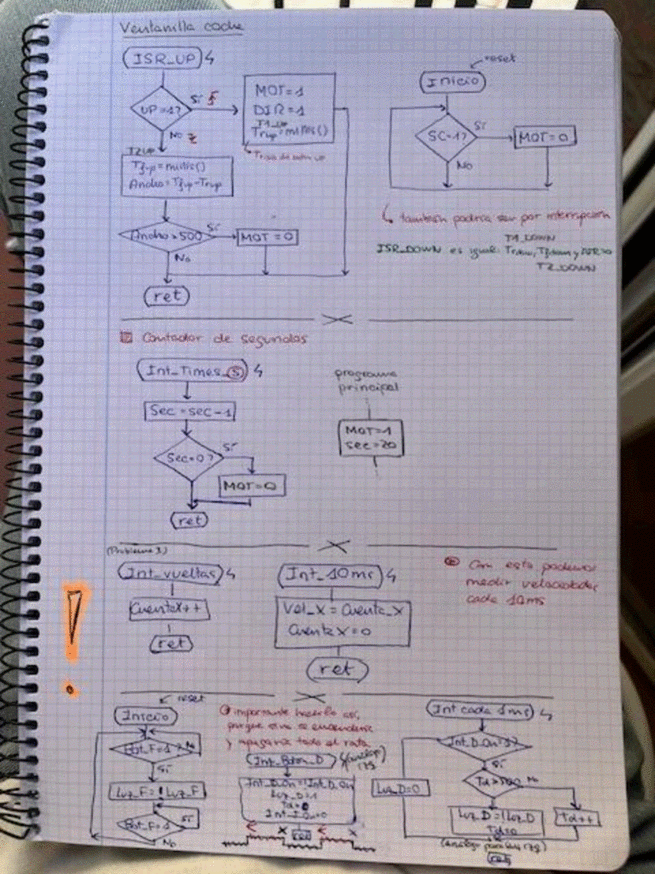 Ventanilla coche
ISR_UP
UP=1?
Sí
No
MOT=1
DIR=1
T1_UP
Trup=millis()
T2UP
Tfup=millis()
Ancho=Tfup-Trup
Ancho>500
Sí
MOT=0
No
ret
reset
Inicio
SC=1?
Sí
MOT=0
No
también podría ser por interrupción
T1_DOWN
ISR_DOWN es igual:
T2_DOWN
Contador de segundos
Int_Times
Sec=sec-1
Sec=0?
Sí
MOT=0
ret
programa
principal
MOT=1
sec=20
(Problema 3)
Int_vueltas
CuentaX++
ret
Int_10ms
Vel_X=Cuenta_X
Cuenta X=0
ret
Con esto podemos
medir velocidades
cada 10ms
!
reset
Inicio
Bot_F=1?
No
Sí
Luz_F=!Luz_F
Bot_F=1
Sí
No
importante hacerlo así,
porque sino se encendería
y apagaría todo el rato
Int_Boton_D
Int_D_On=!Int_D_On
Luz_D=1
Td=0
Int cada 1ms
Int_D_On=1?
Sí
Luz_D=0
Td>500
No
Luz_D=!Luz_D
Td=0
Td++
ret